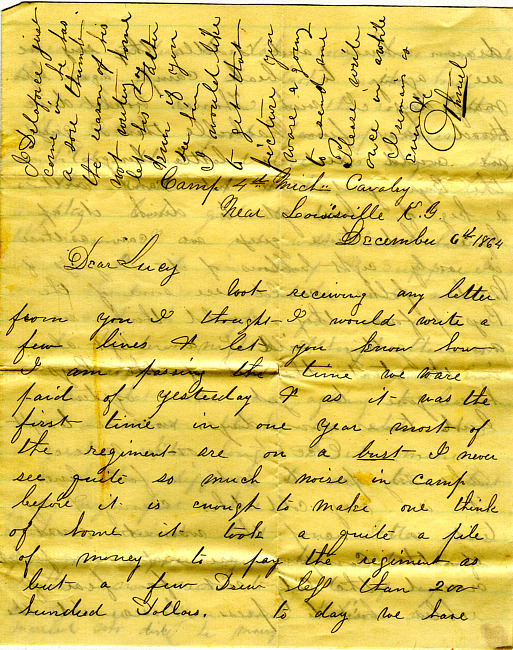 Camp 4th Mich. Cavalry
Near Louisville K.Y.
December 6th 1864
Dear Lucy
not receiving any letter
from you I thought I would write a
few lines & let you know how
I am passing the time we ware
paid of yesterday & as it was the
first time in one year most of
the regiment are on a bust I never
see quite so much noise in camp
before it is enough to make one think
of home it took a quite a pile
of money to pay the regiment as
but a few Drew less than 200
hundred Dollars. to day we have
just
come in he has
a sore thumb
the reason of his
not writing home
let his Father
know if you
see him
I would like
to get that
picture you
were a going
to send me
Please write
once in a while